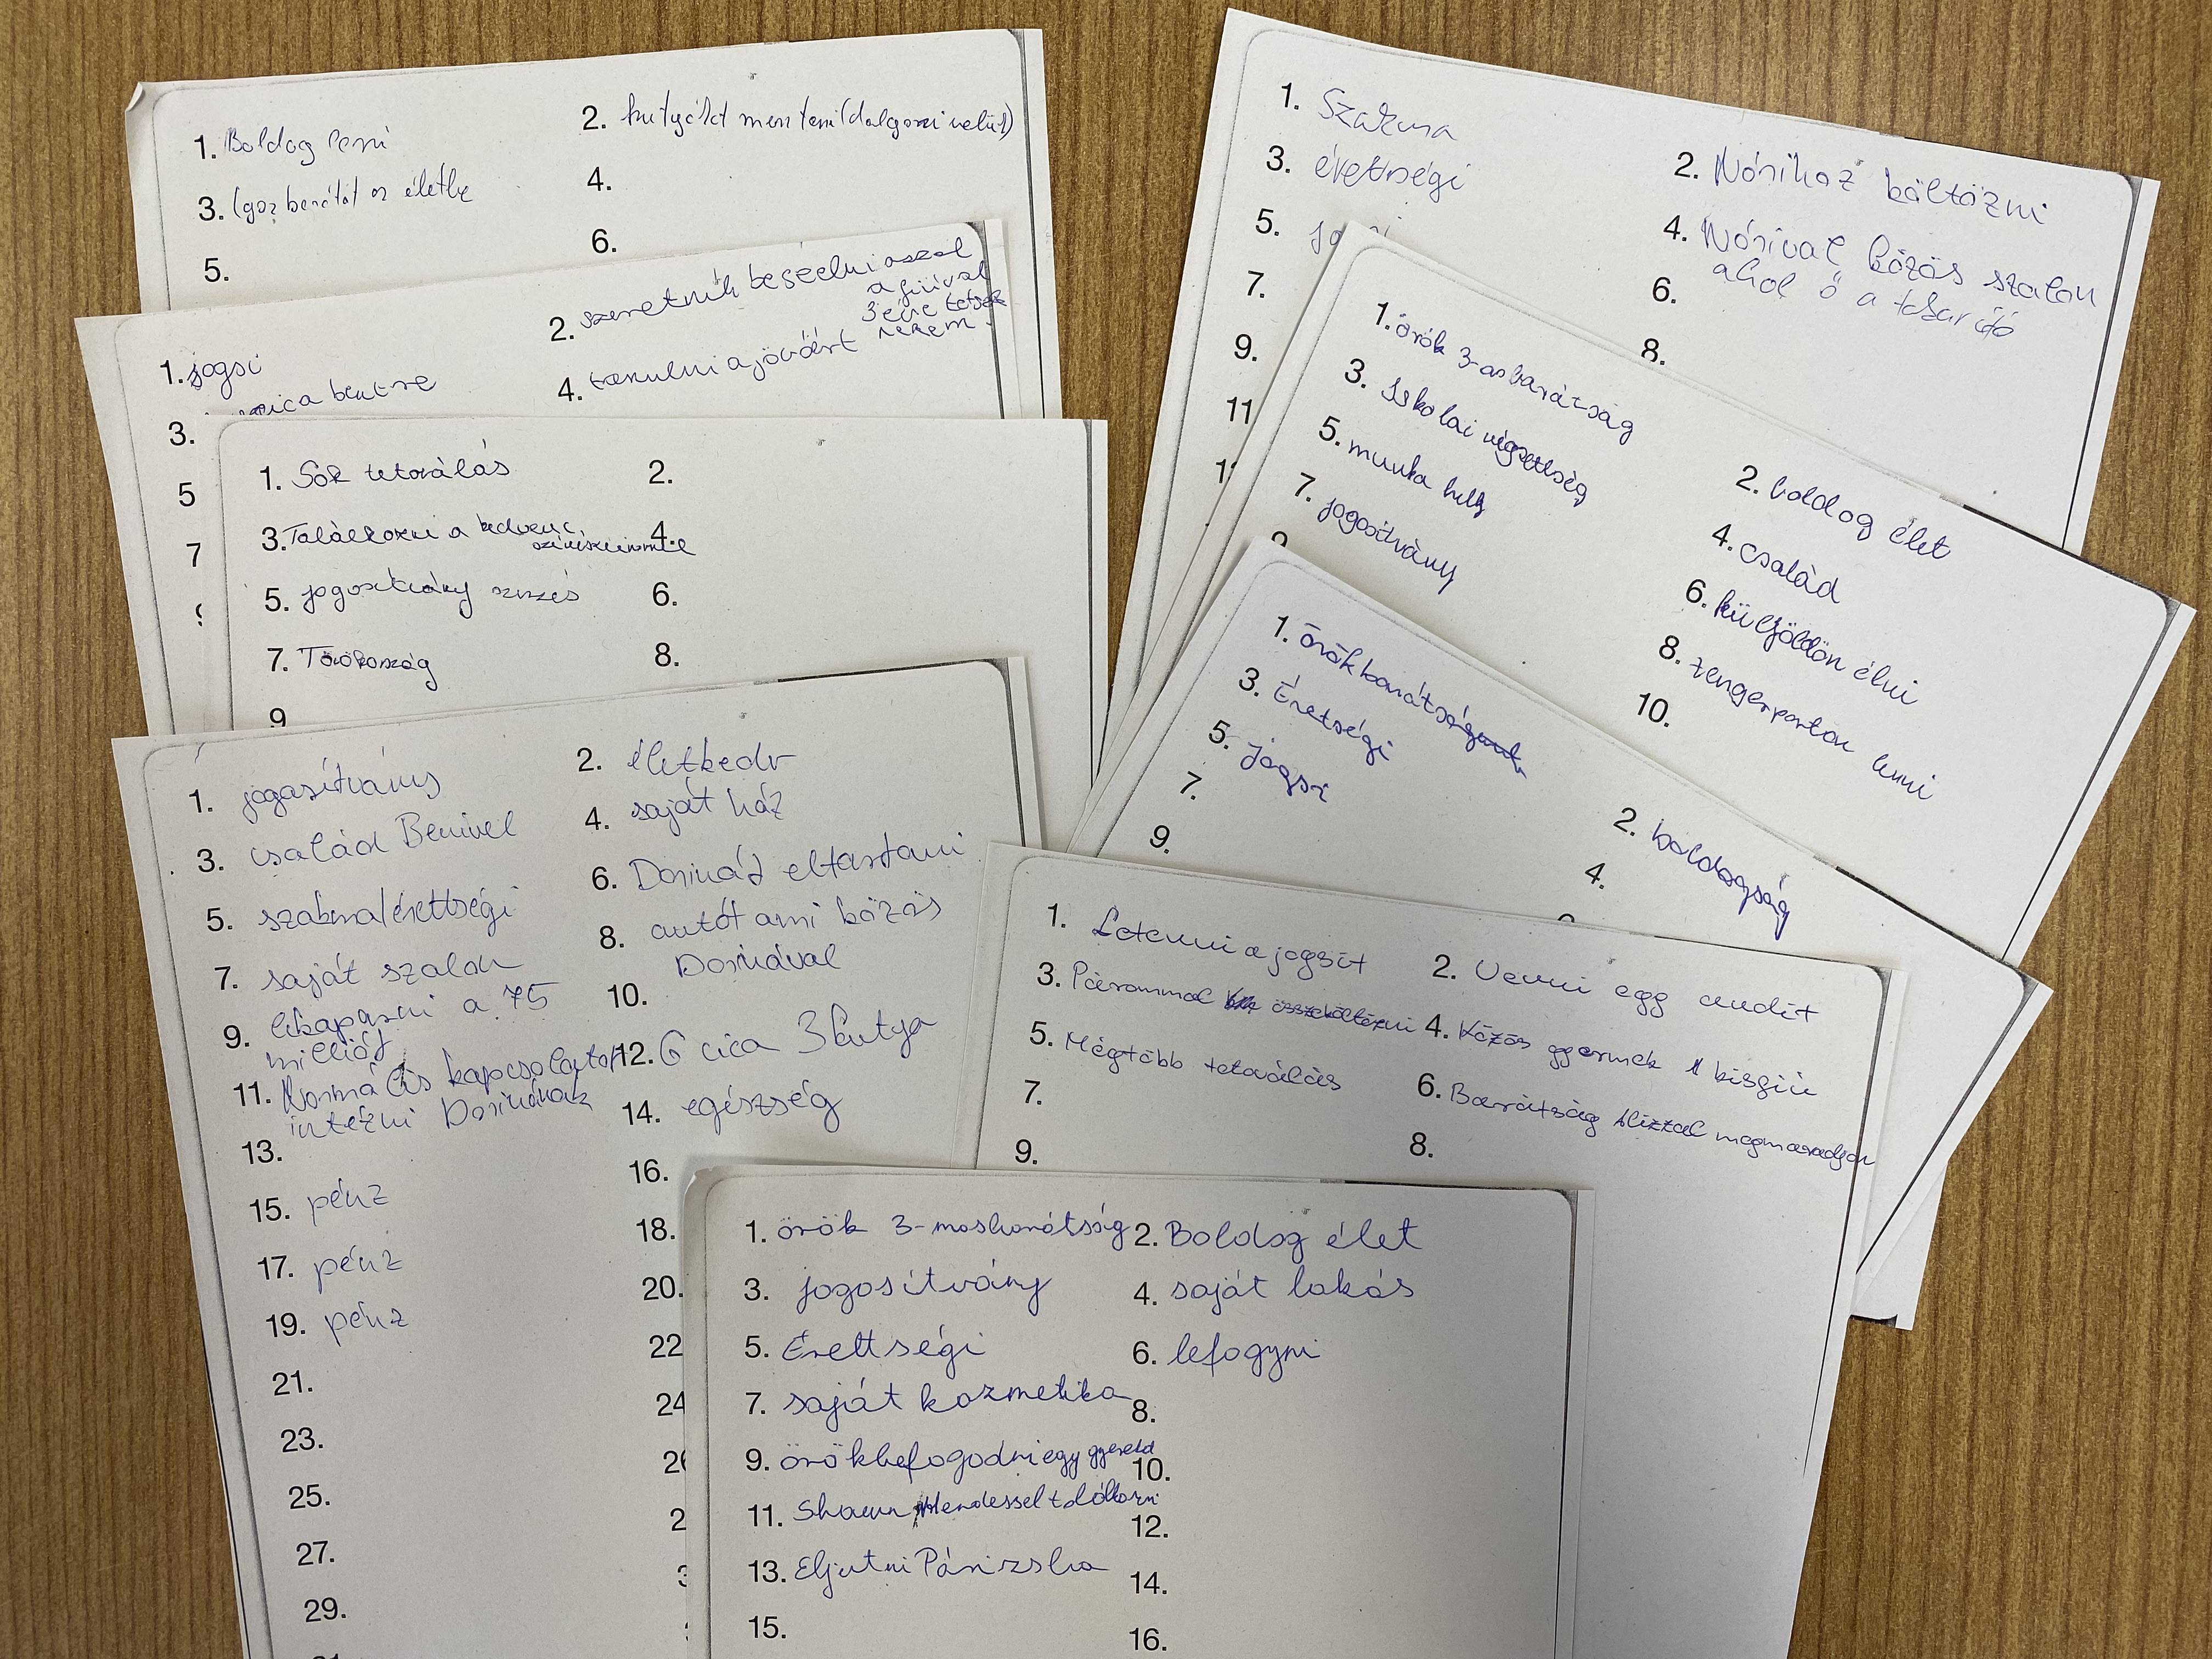 1. Boldog lenni
2. kutyákat menteni (dolgozni velük)
3. Igaz barátot az életbe
4.
5.
6.
1. jogsi
2. szeretnék beszelni azzal
a fiúval
3 éve tetszik
nekem.
3. bentre
4. tanulni a jövőért
5
7
1. Sok tetoválás
2.
3. Találkozni a kedvenc
színészeimmel
4.
5. jogosítvány szerzés
6.
7. Törökország
8.
9.
1. jogosítvány
2. életkedv
3. család Benivel
4. saját ház
5. szakma/érettségi
6. Dorinát eltartani
7. saját szalon
8. autót ami közös
Dorinával
9. kikaparni a 75
milliót
10.
11. Normális kapcsolatot
intézni Dorinának
12. 6 cica 3 kutya
13.
14. egészség
15. pénz
16.
17. pénz
18.
19. pénz
20.
21.
22
23.
24
25.
26
27.
2
29.
3
1. Szakma
2. Nórihoz költözni
3. érettségi
4. Nórival közös szalon
ahol ő a takarító
5.
6.
7.
8.
9.
11
1. örök 3-as barátság
2. boldog élet
3. Iskolai végzettség
4. család
5. munka hely
6. külföldön élni
7. jogosítvány
8. tengerparton lenni
10.
1. örök barátság
2. boldogság
3. Éretségi
4.
5. jogsi
7.
9.
1. Letenni a jogsit
2. Venni egy audit
3. Párommal összeköltözni
4. Közös gyermek 1 kisfiú
5. Mégtöbb tetoválás
6. Barátság Alizzal megmaradjon
7.
8.
9.
1. örök 3-masbarátság
2. Boldog élet
3. jogosítvány
4. saját lakás
5. Érettségi
6. lefogyni
7. saját kozmetika
8.
9. örökbefogodni egy gyereket
10.
11. Shawn Mendessel tolálkozni
12.
13. Eljutni Párizsba
14.
15.
16.